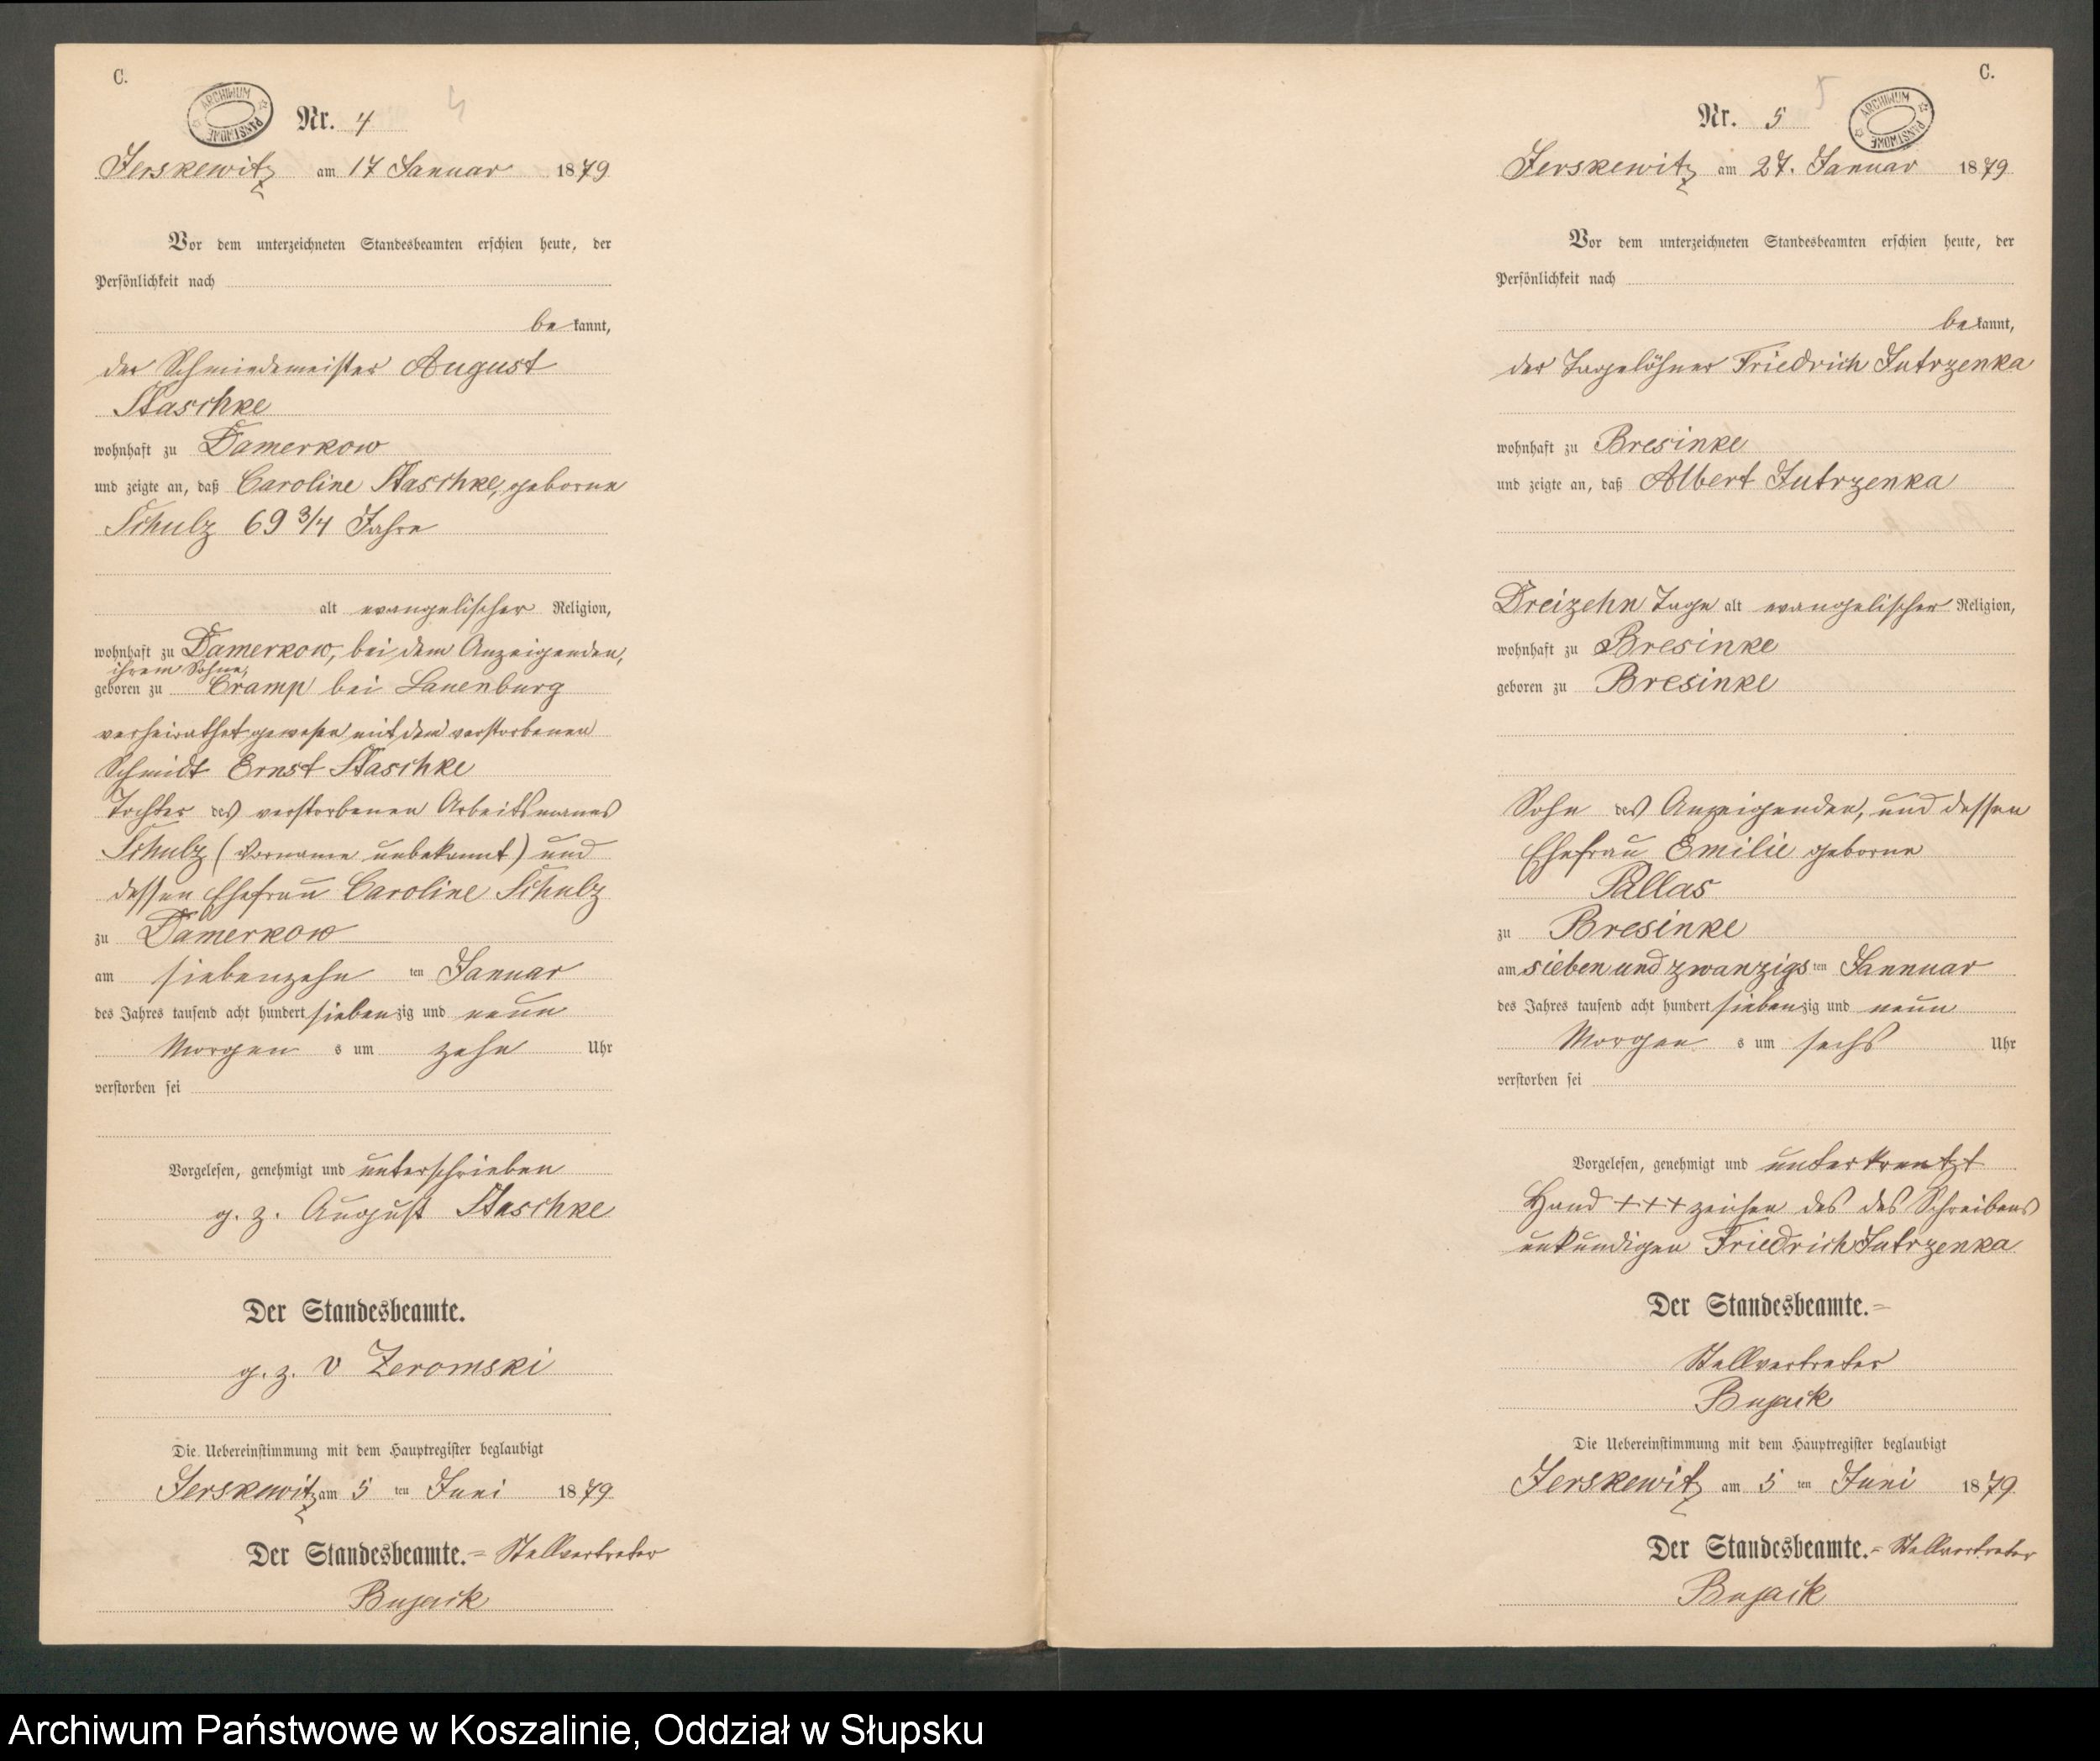 C.
ARCHIWUM PAŃSTWOWE
Nr. 4
4
Jerskewitz am 17 Januar 1879
Vor dem unterzeichneten Standesbeamten erschien heute, der
Persönlichkeit nach
be kannt,
der Schmiedemeister August
Staschke
wohnhaft zu Damerkow
und zeigte an, daß Caroline Staschke, geborne
Schulz 69 3/4 Jahre
alt evangelischer Religion,
wohnhaft zu Damerkow, bei dem Anzeigenden,
ihrem Sohne,
geboren zu Cramp bei Lauenburg
verheirathet gewesen mit dem verstorbenen
Schmidt Ernst Staschke
Tochter des verstorbenen Arbeitsmanns
Schulz (Vorname unbekannt) und
dessen Ehefrau Caroline Schulz
zu Damerkow
am siebenzehn ten Januar
des Jahres tausend acht hundert sieben zig und neun
Morgen s um zehn Uhr
verstorben sei
Vorgelesen, genehmigt und unterschrieben
g. z. August Staschke
Der Standesbeamte.
g. z. v Zeromski
Die Uebereinstimmung mit dem Hauptregister beglaubigt
Jerskewitz am 5 ten Juni 1879
Der Standesbeamte.= Stellvertreter
Bujack
C.
5
ARCHIWUM PAŃSTWOWE
Nr. 5
Jerskewitz am 27. Januar 1879
Vor dem unterzeichneten Standesbeamten erschien heute, der
Persönlichkeit nach
be kannt,
der Tagelöhner Friedrich Jutrzenka
wohnhaft zu Bresinke
und zeigte an, daß Albert Jutrzenka
Dreizehn Tage alt evangelischer Religion,
wohnhaft zu Bresinke
geboren zu Bresinke
Sohn des Anzeigenden, und dessen
Ehefrau Emilie geborne
Pallas
zu Bresinke
am sieben und zwanzigs ten Jannuar
des Jahres tausend acht hundert sieben zig und neun
Morgen s um sechs Uhr
verstorben sei
Vorgelesen, genehmigt und unterkreutzt
Hand +++ zeichen des des Schreibens
unkundigen Friedrich Jutrzenka
Der Standesbeamte.=
Stellvertreter
Bujack
Die Uebereinstimmung mit dem Hauptregister beglaubigt
Jerskewitz am 5 ten Juni 1879
Der Standesbeamte.= Stellvertreter
Bujack
Archiwum Państwowe w Koszalinie, Oddział w Słupsku